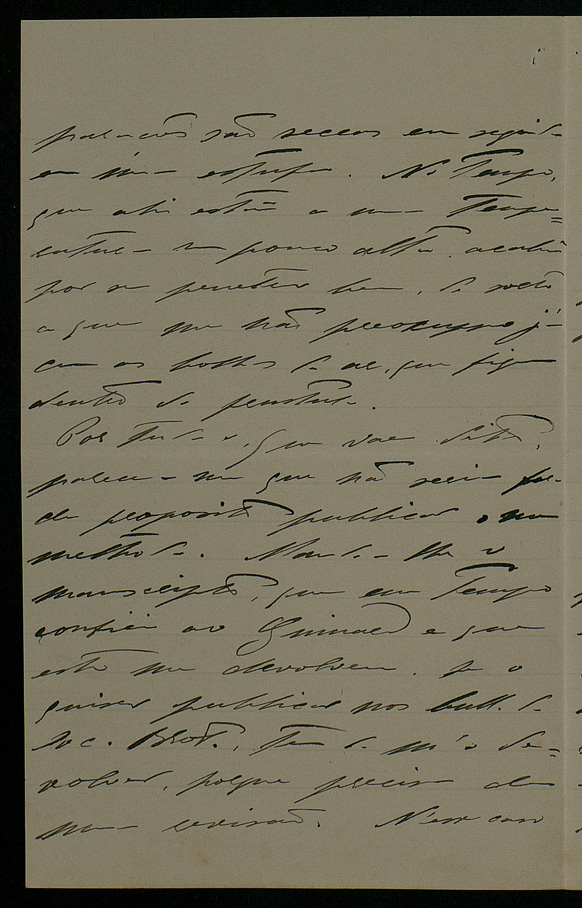 parações são seccas em seguida
em uma estufa. No tempo,
que ali estão a uma tempe=
ratura um pouco alta, acabão
por se penetrar bem, de sorte
a que me não preoccupo já
com as bolhas de ar, que ficam
dentro da
Por tudo o, que vae dito,
parece-me que não seria fora
de proposito publicar o meu
methodo. Mando-lhe o
manuscripto, que em tempo
confiei ao e que
este me devolveu. Se o
quiser publicar nos bull. da
Soc. Brot., tem de m'o de=
volver, porque precisa de
uma revisão. N'esse caso